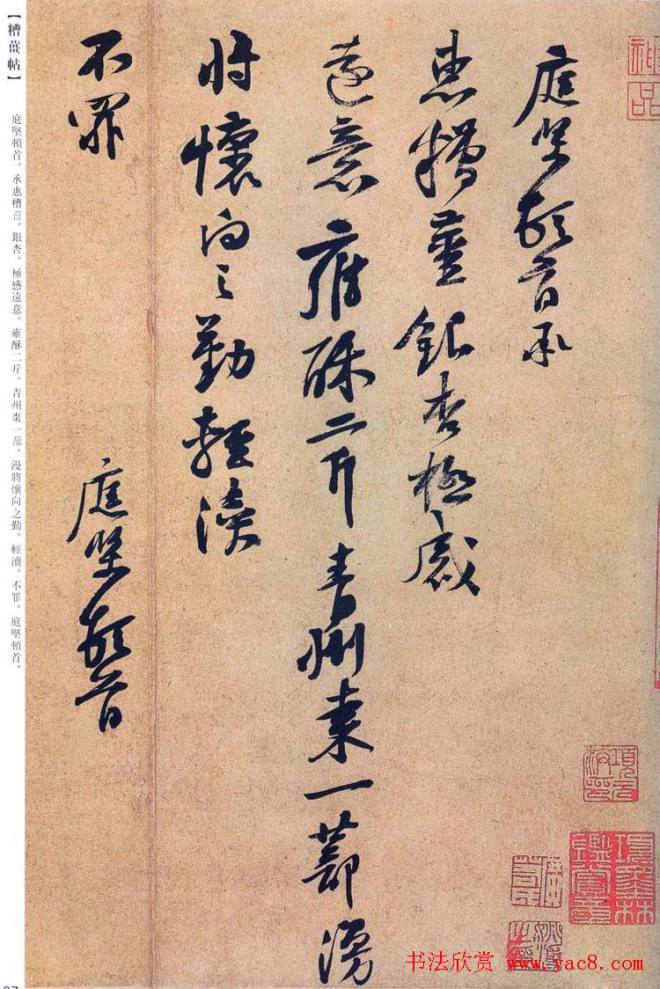 神品
庭堅頓首承
惠糟薑銀杏極感
遠意雍酥二斤青州棗一蔀漫
將懷向之勤輕瀆
不罪
庭堅頓首
項元汴印
項墨林鑑賞章
【糟薑帖】
庭堅頓首。承惠糟薑。銀杏。極感遠意。雍酥二斤。青州棗一蔀。漫將懷向之勤。輕瀆。不罪。庭堅頓首。
书法欣赏 www.yac8.com